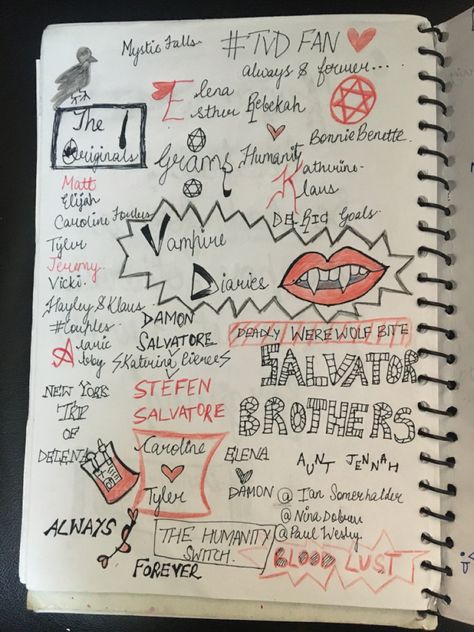 Mystic Falls.
#TVD FAN
always & forever...
The
Originals
Elena
Esther Rebekah
Grams
Humanity
Bonnie Benette.
Katherine-
Klaus
DE-RIC Goals.
Matt
Elijah
Caroline Forbes
Tyler
Jeremy
Vicki.
Hayley & Klaus
#Couples.
Alaric
Abby
Vampire
Diaries
DAMON
SALVATORE
Katerina Pierce
DEADLY WEREWOLF BITE
SALVATOR
BROTHERS
NEW YORK
TRIP
OF
DELENA
STEFEN
SALVATORE
Caroline
Tyler
ELENA
DAMON
AUNT JENNAH
@ Ian Somerhalder
@Nina Dobrev
@Paul Wesley
ALWAYS
FOREVER
THE HUMANITY
SWITCH.
BLOOD LUST